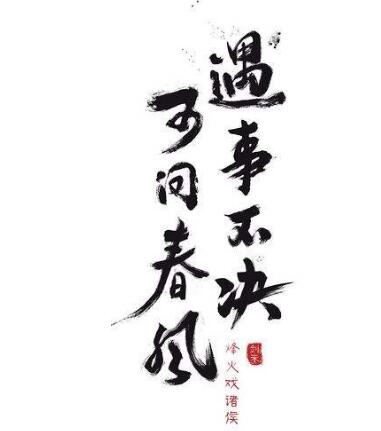 遇事不决
可问春风
烽火戏诸侯